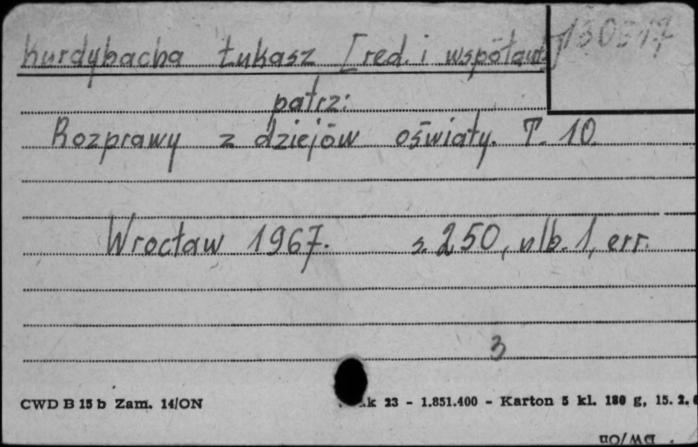 Kurdybacha Łukasz [red. i współaut.]
patrz:
Rozprawy z dziejów oświaty. T. 10.
Wrocław 1967. s. 250, nlb. 1, err.
3
CWD B 15 b Zam. 14/ON 23 - 1.851.400 - Karton 5 kl. 180 g, 15. 2.